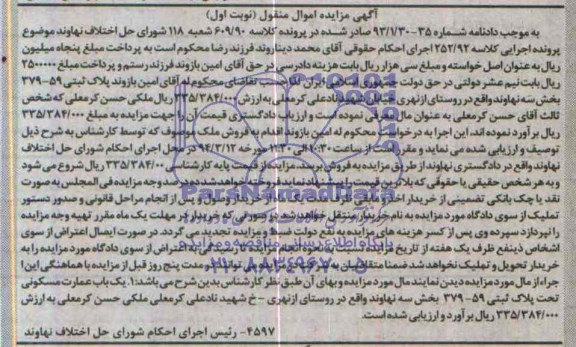 آگهی مزایده اموال منقول (نوبت اول)
به موجب دادنامه شماره ۳۵-۹۳/۱/۳۰ صادر شده در پرونده کلاسه ۶۰۹/۹۰ شعبه ۱۱۸ شورای حل اختلاف نهاوند موضوع
پرونده اجرایی کلاسه ۲۵۲/۹۲ اجرای احکام حقوقی آقای محمد دیناروند فرزند رضا محکوم است به پرداخت مبلغ پنجاه میلیون
ریال به عنوان اصل خواسته و مبلغ سی هزار ریال بابت هزینه دادرسی در حق آقای امین بازوند فرزند رستم و پرداخت مبلغ ۲۵۰۰۰۰۰
ریال بابت نیم عشر دولتی در حق دولت جمهوری اسلامی ایران تقاضای محکوم له آقای امین بازوند پلاک ثبتی ۵۹-۳۷۹
بخش سه نهاوند واقع در روستای ازنهری خیابان شهید نادعلی کرمعلی به ارزش ۳۳۵/۳۸۴/۰۰۰ ریال ملکی حسن کرمعلی که شخص
ثالث آقای حسن کرمعلی به عنوان مال معرفی نموده است و ارزیاب دادگستری قیمت آن را جهت مزایده به مبلغ ۳۳۵/۳۸۴/۰۰۰
ریال برآورد نموده اند، این اجرا به درخواست محکوم له امین بازوند اقدام به فروش ملک موصوف که توسط کارشناس به شرح ذیل
توصیف و ارزیابی شده می نماید و مقرر است از ساعت ۱۰:۳۰ الی ۱۱:۳۰ مورخه ۹۴/۳/۱۲ در محل اجرای احکام شورای حل اختلاف
نهاوند واقع در دادگستری نهاوند از طریق مزایده به فروش برسد. مزایده از قیمت پایه کارشناسی ۳۳۵/۳۸۴/۰۰۰ ریال شروع می شود
و به هر شخص حقیقی یا حقوقی که بالاترین قیمت را پیشنهاد نماید فروخته خواهد شد. ده درصد وجه مزایده فی المجلس به صورت
نقد یا چک بانکی تضمینی از خریدار اخذ خریدار و پس از انجام مراحل قانونی و صدور دستور
تملیک از سوی دادگاه مورد مزایده به نام خریدار منتقل خواهد شد در صورتی که خریدار در مهلت یک ماه مقرر تهیه وجه مزایده
را نپردازد سپرده وی پس از کسر هزینه های مزایده به نفع دولت ضبط و مزایده تجدید می گردد. در صورت ایصال اعتراض از سوی
اشخاص ذینفع ظرف یک هفته از تاریخ مزایده به نحوه انجام مزایده تا رسیدگی به اعتراض از سوی دادگاه مورد مزایده را به
خریدار تحویل و تملیک نخواهد شد ضمنا متقاضیان به شرکت در مزایده می توانند در مدت پنج روز قبل از مزایده با هماهنگی این ا
جرا، از مال مورد مزایده دیدن نمایند مال مورد مزایده و بهای آن طبق نظر کارشناس بدین شرح می باشد: ۱. یک باب عمارت مسکونی
تحت پلاک ثبتی ۵۹-۳۷۹ بخش سه نهاوند واقع در روستای ازنهری - خ شهید نادعلی کرمعلی ملکی حسن کرمعلی به ارزش
۳۳۵/۳۸۴/۰۰۰ ریال برآورد و ارزیابی شده است.
۴۵۹۷- رئیس اجرای احکام شورای حل اختلاف نهاوند
ParsNamadData
پایگاه اطلاع رسانی مناقصه و مزایده